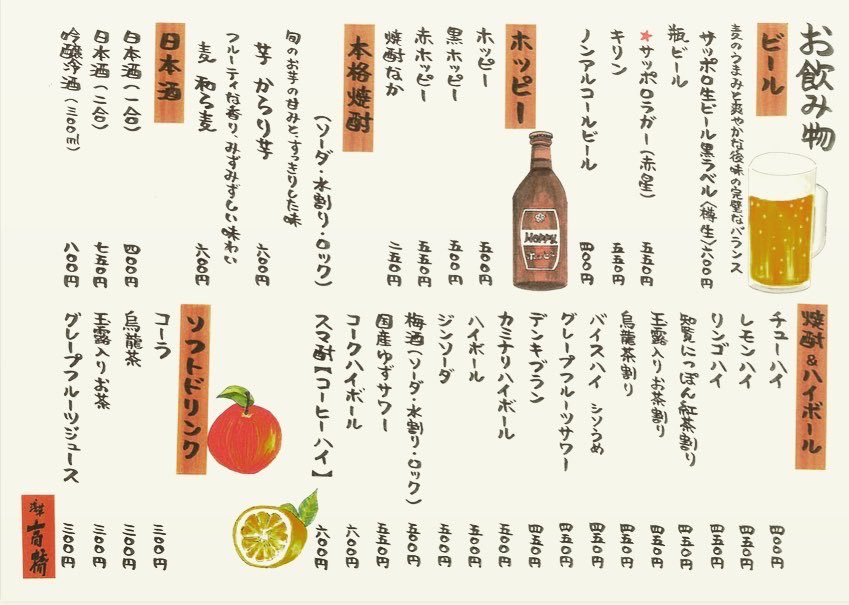 お飲み物
ビール
麦のうまみと爽やかな後味の完璧なバランス
サッポロ生ビール黒ラベル〈樽生〉六〇〇円
瓶ビール
★サッポロラガー(赤星) 五五〇円
キリン 五五〇円
ノンアルコールビール 四〇〇円
ホッピー
Hoppy
ホッピー
ホッピー 五〇〇円
黒ホッピー 五〇〇円
赤ホッピー 五五〇円
焼酎なか 二五〇円
本格焼酎
(ソーダ・水割り・ロック)
旬のお芋の甘みと、すっきりした味
芋 からり芋 六〇〇円
フルーティな香り、みずみずしい味わい
麦 和ら麦 六〇〇円
日本酒
日本酒(一合) 四〇〇円
日本酒(二合) 七五〇円
吟醸冷酒(三〇〇ml) 八〇〇円
焼酎&ハイボール
チューハイ 四〇〇円
レモンハイ 四五〇円
リンゴハイ 四五〇円
知覧にっぽん紅茶割り 四五〇円
玉露入りお茶割り 四五〇円
烏龍茶割り 四五〇円
バイスハイ シソうめ 四五〇円
グレープフルーツサワー 四五〇円
デンキブラン 四五〇円
カミナリハイボール 五〇〇円
ハイボール 五〇〇円
ジンソーダ 五〇〇円
梅酒(ソーダ・水割り・ロック) 五〇〇円
国産ゆずサワー 五五〇円
コークハイボール 六〇〇円
スマ酎【コーヒーハイ】 六〇〇円
ソフトドリンク
コーラ 三〇〇円
烏龍茶 三〇〇円
玉露入りお茶 三〇〇円
グレープフルーツジュース 三〇〇円